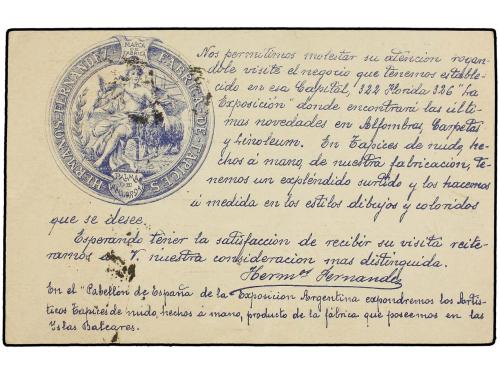 MARCA DE FÁBRICA
HERMANOS FERNANDEZ FABRICA DE TAPICES
PALMA DE
Nos permitimos molestar su atención rogan-
dole visite el negocio que tenemos estable-
cido en esa Capital, 322 Florida 326 "La
Exposición" donde encontrará las últi-
mas novedades en Alfombras, Carpetas
y Linoleum. En Tapices de nudo, he-
chos á mano, de nuestra fabricación, te-
nemos un expléndido surtido y los hacemos
á medida en los estilos dibujos y coloridos
que se desee.
Esperando tener la satisfacción de recibir su visita reite-
ramos á V. nuestra consideración mas distinguida.
Hermos Fernandez
En el "Pabellón de España de la Exposición Argentina expondremos los Artís-
ticos Tapices de nudo, hechos á mano, producto de la fábrica que poseemos en las
Islas Baleares.